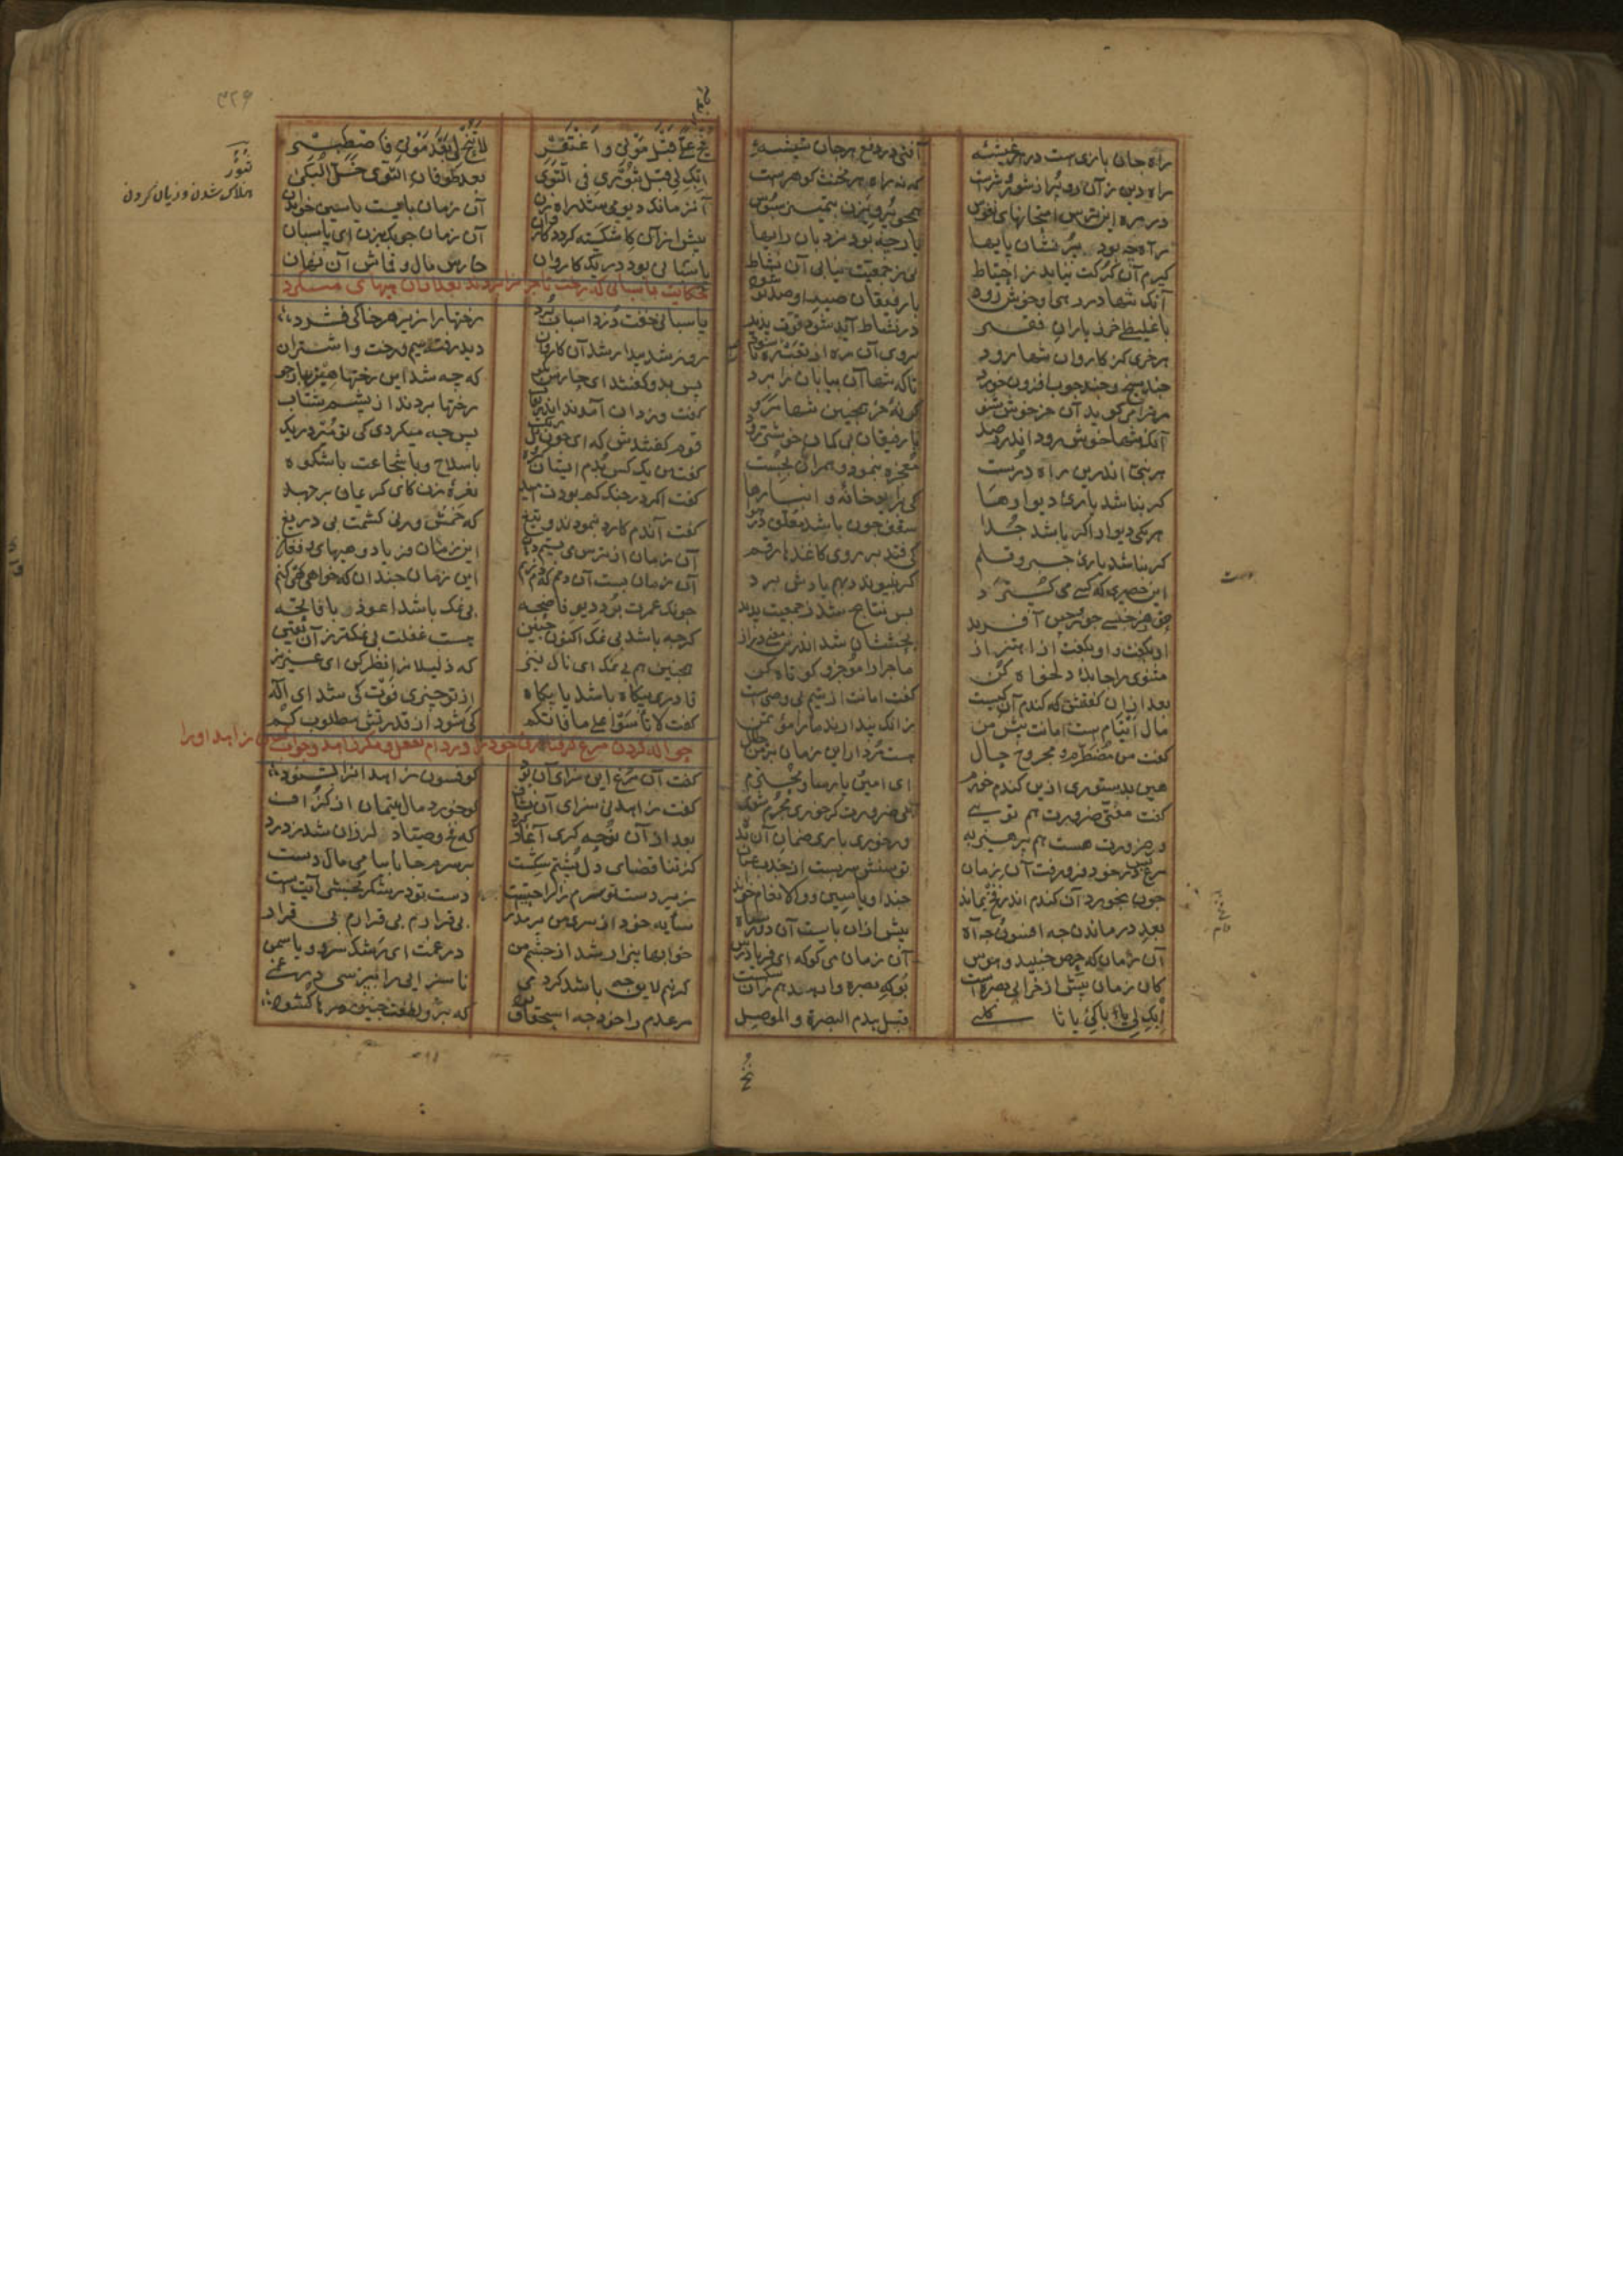 راه جان بازی است در هر غیشهٔ آفتی در دفع هر جان شیشهٔ
راه دین زان رو پر از شور و شرست که نه راه هر مخنث کوهرست
در ره این ترس امتحانهای نفوس همجو پرویزن بتمییز سبوس
راه چه بود پر نشان پایها یار چه بود نردبان رایها
کیرم آن کرکت نیابد ز احتیاط بی ز جمعیت نیابی آن نشاط
آنک تنها در رهی او خوش رود با رفیقان صد او صد تو شود
با غلیظی خر ز یاران فقیر در نشاط آید شود قوت پذیر
هر خری کز کاروان تنها رود بروی آن ره از تعب صد تو شود
چند سیخ و چند چوب افزون خورد تا که تنها آن بیابان را برد
مر ترا می کوید آن خر خوش شنو کر نهٔ خر همچنین تنها مرو
آنک تنها خوش رود اندر رصد با رفیقان بی کمان خوشتر رود
هر نبیی اندرین راه درست معجزه بنمود و همراهان بجست
کر نباشد یاریٔ دیوارها کی براید خانه و انبارها
هر یکی دیوار اکر باشد جدا سقف چون باشد معلق در هوا
کر نباشد یاریٔ حبر و قلم کی فتد بر روی کاغذها رقم
این حصیری که کسی می کسترد کر نپیوندد بهم بادش برد
حق ز هر جنسی چو زوجین آفرید پس نتایج شد ز جمعیت پدید
او بکفت و او بکفت از اهتزاز بحثشان شد اندرین معنی دراز
مثنوی را چابک و دلخواه کن ماجرا را موجز و کوتاه کن
بعد ازان کفتش که کندم آن کیست کفت امانت از یتیم بی وصیست
مال ایتام است امانت پیش من زانک پندارند ما را مؤتمن
کفت من مضطرم و مجروح حال هست مردار این زمان بر من حلال
هین بدستوری ازین کندم خورم ای امین و پارسا و محترم
کفت مفتی ضرورت هم تویی بی ضرورت کر خوری مجرم شوی
ور ضرورت هست هم پرهیز به ور خوری باری ضمان آن بده
مرغ بس در خود فرو رفت آن زمان توسنش سر بستد از جذب عنان
چون بخورد آن کندم اندر فخ بماند چند او یاسین و والانعام خواند
بعد در ماندن چه افسوس و چه آه پیش ازان بایست آن دود سیاه
آن زمان که حرص جنبید و هوس آن زمان می کو که ای فریادرس
کان زمان پیش از خرابی بصره است بوکه بصره وا رهد هم زان شکست
ابک لی یا باکیٔ یا ثاکلی قبل هدم البصرة و الموصل
نح علی قبل موتی واغتفر لا تنح لی بعد موتی فاصطبر
ابک لی قبل ثبوری فی النوی بعد طوفان النوی خل البکی
آن زمانک دیو می شد راه زن آن زمان بایست یاسین خواندن
پیش از آن کاشکسته کردد کاروان آن زمان چوبک بزن ای پاسبان
حکایت پاسبانی که رخت تاجر را بردند بعد ازان هیهای میکرد
پاسبانی بود در یک کاروان حارس مال و قماش آن مهان
پاسبانی خفت دزد اسباب برد رختها را زیر هر خاکی فشرد
روز شد بیدار شد آن کاروان دید رفته سیم و رخت و اشتران
پس بدو کفتند ای حارس بکو که چه شد این رختها
کفت دزدان آمدند اندر نقاب رختها بردند از پیشم شتاب
قوم کفتندش که ای چون تل ریک پس چه میکردی کی تو مرده ریک
کفت من یک کس بدم ایشان کروه با سلاح و با شجاعت با شکوه
کفت اکر در جنک کم بودت امید نعرهٔ زن کای کریمان بر جهید
کفت آندم کارد بنمودند و تیغ که خمش ورنی کشمت بی دریغ
آن زمان از ترس من بستم دهان این زمان فریاد و هیهای و فغان
آن زمان بست آن دمم که دم زنم این زمان چندان که خواهی نی کنم
چونک عمرت برد دیو فاضحه بی نمک باشد اعوذ و فاتحه
کرچه باشد بی نمک اکنون حنین هست غفلت بی نمکتر زان یقین
همچنین هم بی نمک می نال نیز که ذلیلان را نظر کن ای عزیز
قادری بیکاه باشد یا بکاه از تو چیزی فوت کی شد ای اله
کفت لا تأسوا علی ما فاتکم کی شود از قدرتش مطلوب کم
حواله کردن مرغ کرفتاری خود را در دام بفعل و مکر زاهد و جواب زاهد او را
کفت آن مرغ این سزای آن بود کو فسون زاهدان را بشنود
کفت زاهد نی سزای آن نشاف کو خورد مال یتیمان از کزاف
بعد از آن نوحه کری آغاز کرد که فخ و صیاد لرزان شد ز درد
کز تناقضهای دل پشتم شکست بر سرم جانا بیا می مال دست
زیر دست تو سرم را راحتیست دست تو در شکر بخشی آیتیست
سایه خود از سر من بر مدار بی قرارم بی قرارم بی قرار
خوابها بیزار شد از چشم من در غمت ای رشک سرو و یاسمن
کر نیم لایق چه باشد کر دمی ناسزایی را بپرسی در غمی
مر عدم را خود چه استحقاق بود که برو لطفت چنین درها کشود
نح
ثبور
هلاک شدن و زیان کردن